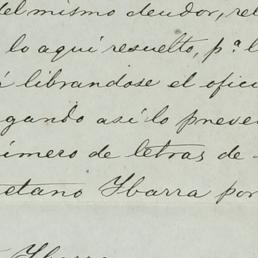 del mismo deudor, rel
lo aquí resuelto, pª l
librandose el ofici
gando así lo preve
úmero de letras de
etano Ybarra por
Ybarra